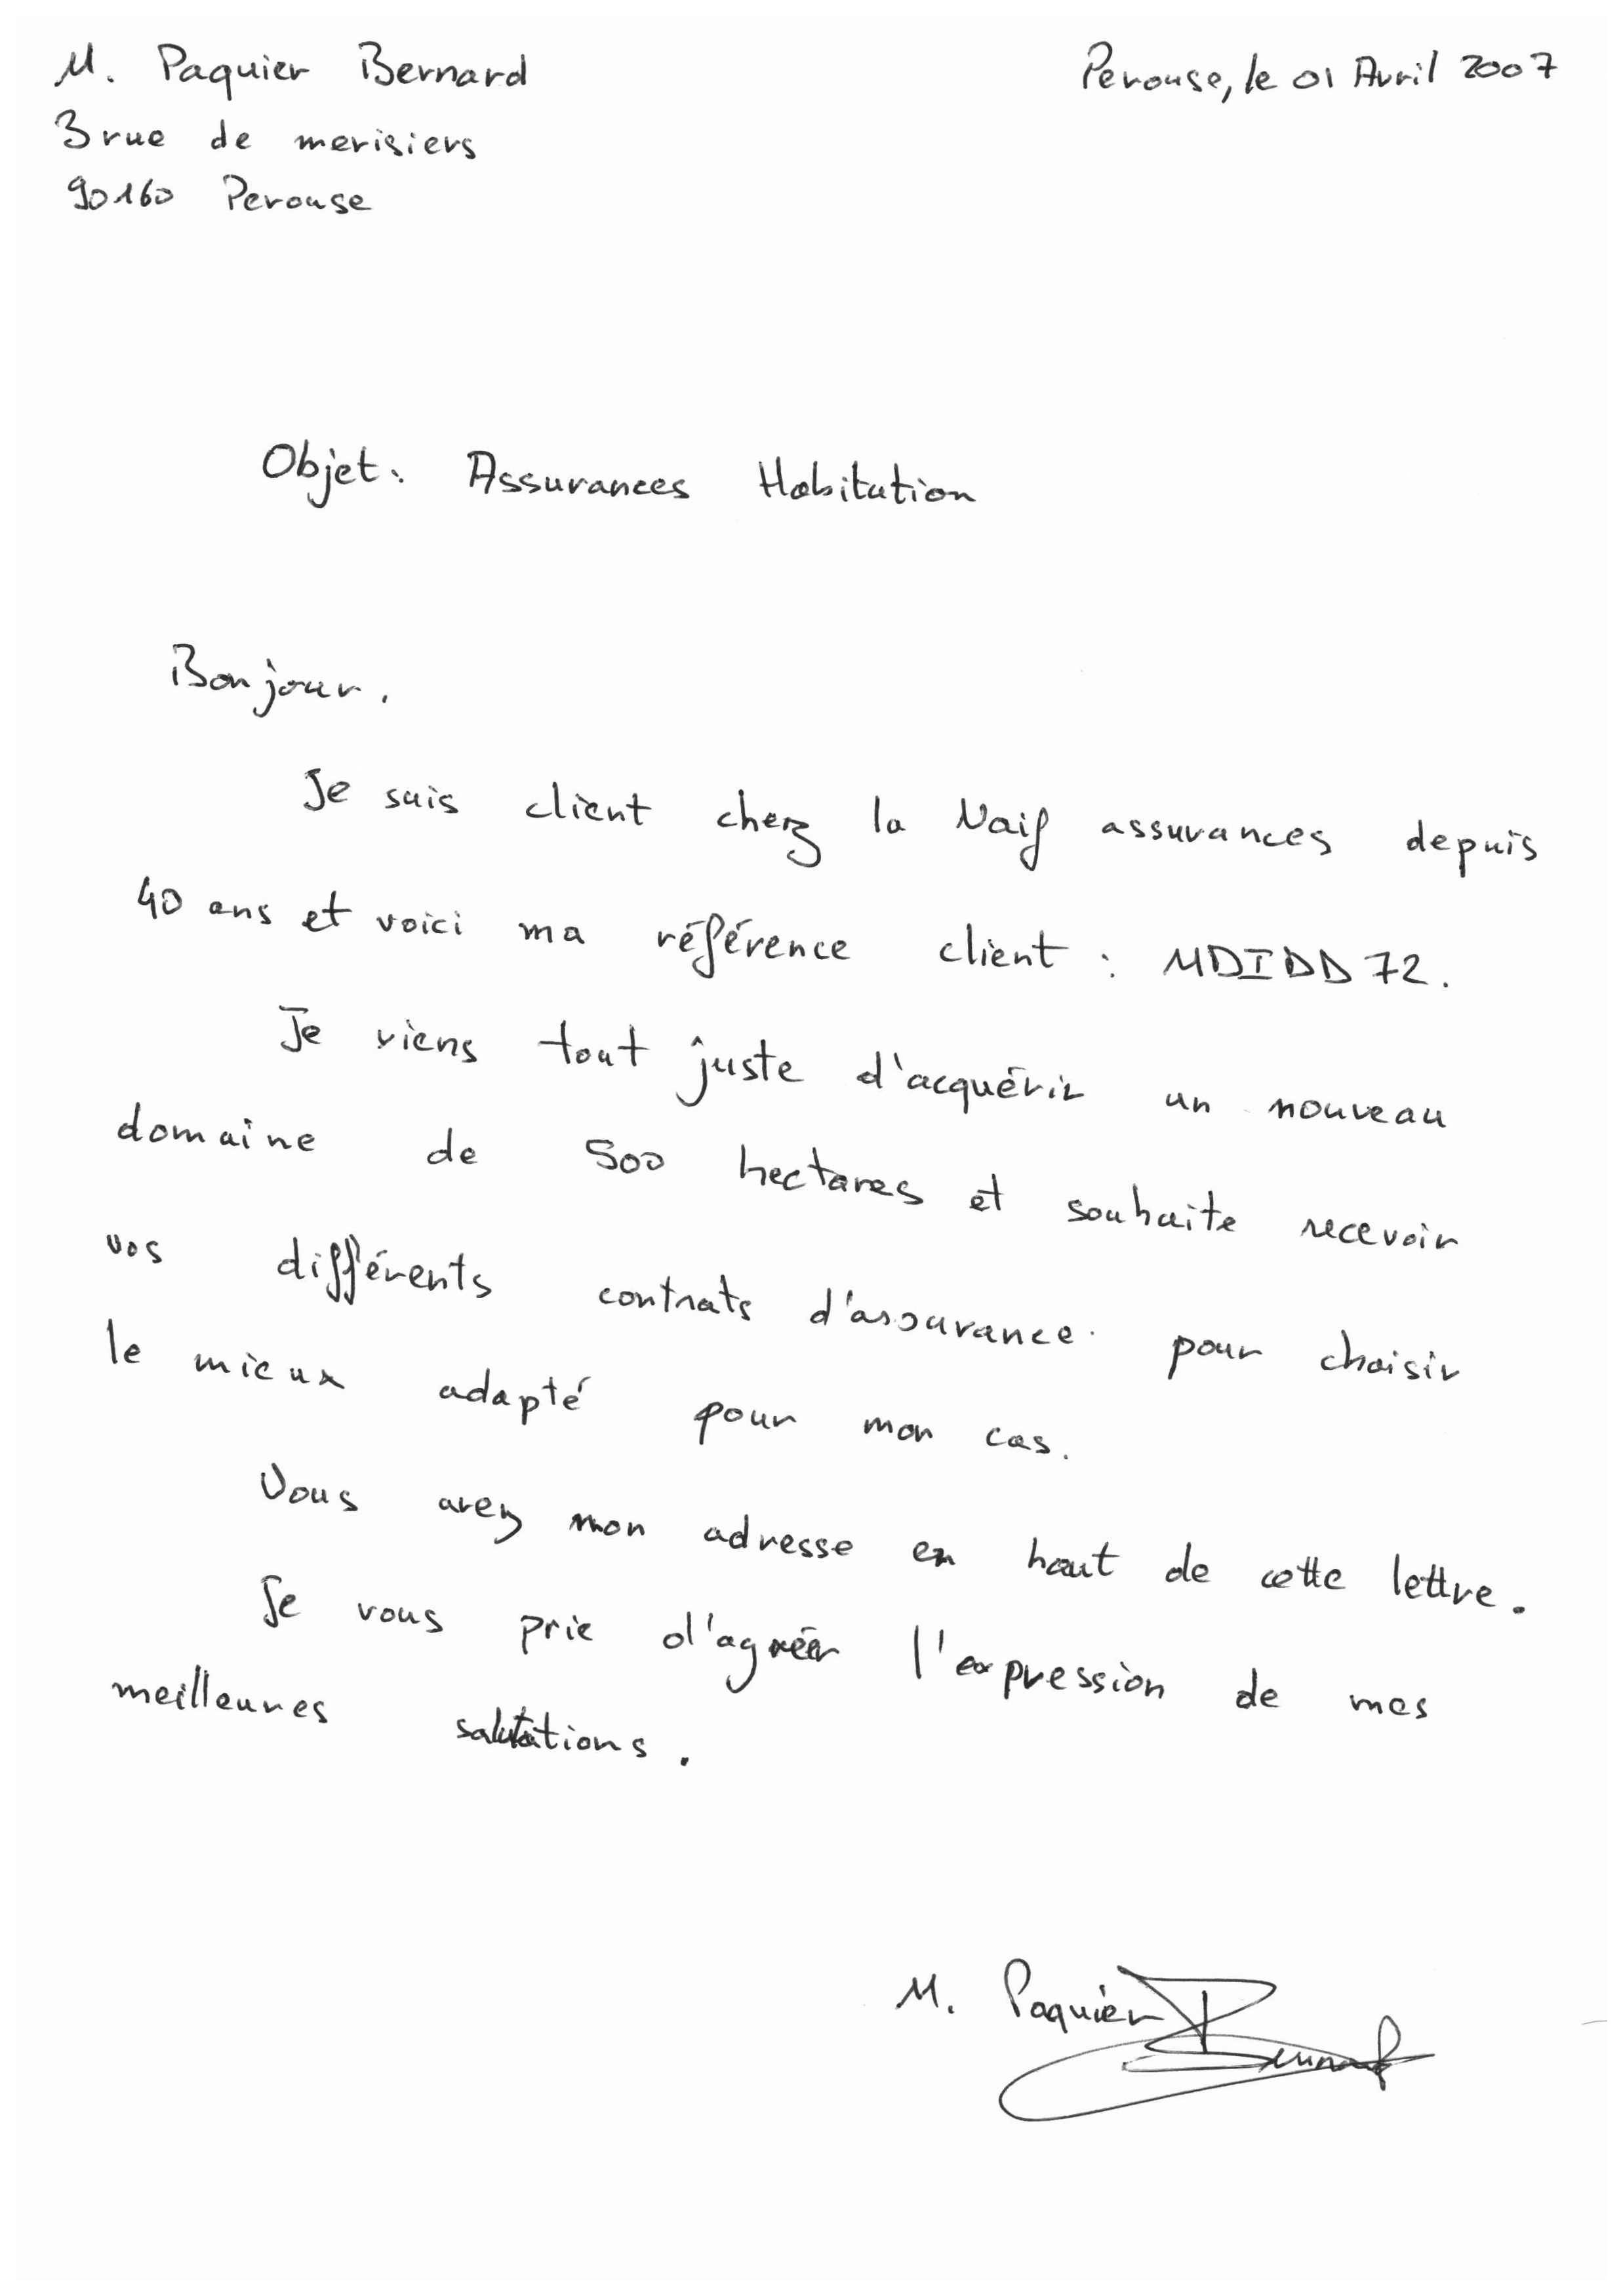 M. Paquier Bernard
Perouse, le 01 Avril 2007
3 rue de merisiers
90160 Perouse
Objet: Assurances Habitation
Bonjour.
Je suis client chez la Naif assurances depuis
40 ans et voici ma référence client : MDIDD72.
Je viens tout juste d'acquérir un nouveau
domaine de 500 hectares et souhaite recevoir
vos différents contrats d'assurance pour choisir
le mieux adapté pour mon cas.
Vous avez mon adresse en haut de cette lettre.
Je vous prie d'agréer l'expression de mes
meilleures salutations.
M. Paquier Bernard